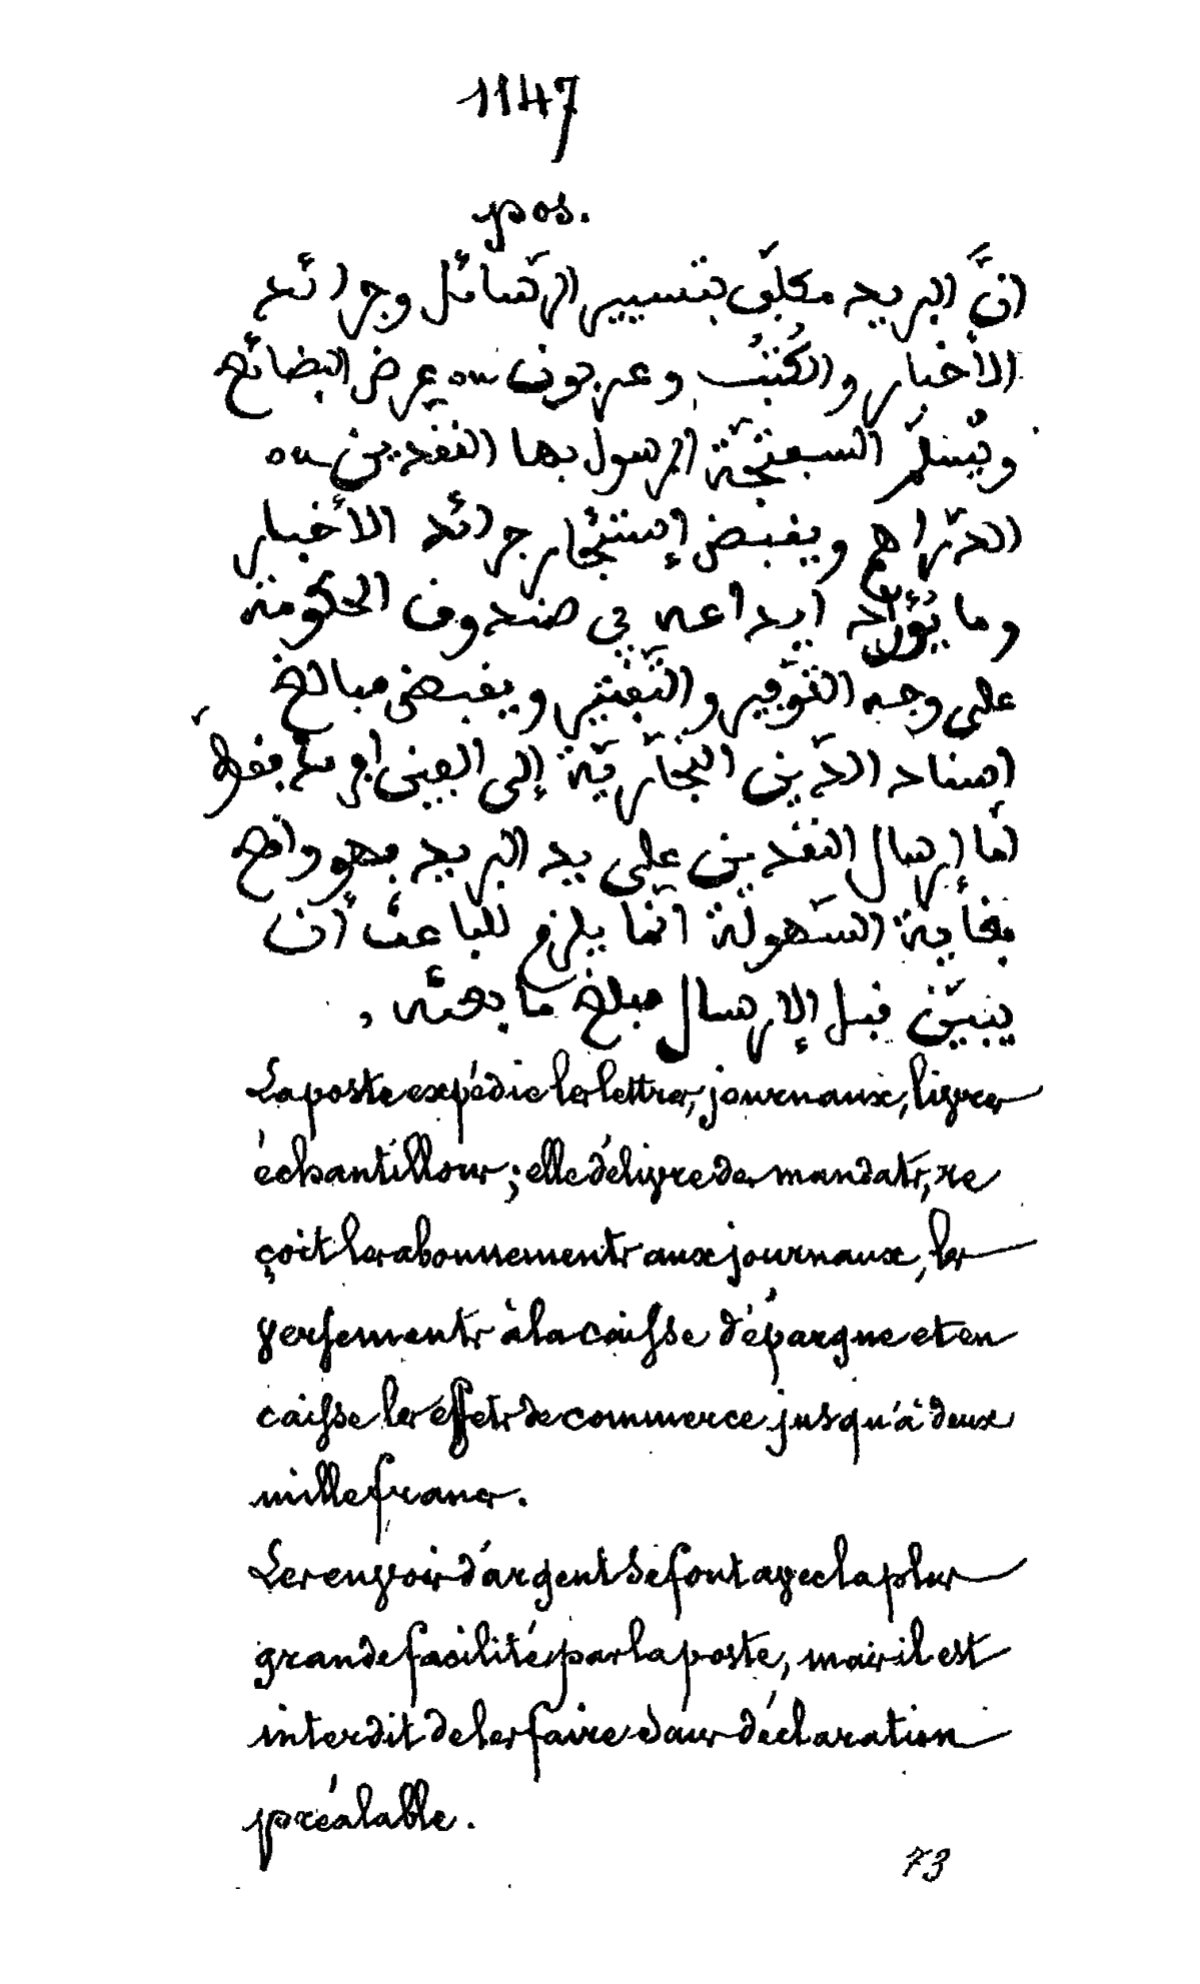 1147
pos.
انّ البريد مكلّف بتسيير الرّسائل وجرائد
الأخبار والكُتُب وعربون ou عرض البضائع
ويُسلّم السفتجّة الرسول بها النقدين ou
الدّراهم ويقبض إستئجار جرائد الأخبار
وما يُؤراد ايداعه في صندوق الحكومة
على وجه التّوفير والتّقتير ويقبض مبالغ
اسناد الدّين التّجارّيّة إلى الفين افرنك فقط
امّا إرسال النقدين على يد البريد فهو واقع
بغاية السّهولة انّما يلزم للباعث أن
يبيّن قبل الإرسال مبلغ ما بعثه ,
La poste expédie les lettres, journaux, livres
échantillons; elle délivre des mandats, re
çoit les abonnements aux journaux, les
versements à la caisse d'épargne et en
caisse les effets de commerce jusqu'à deux
mille francs.
Les envois d'argent se font avec la plus
grande facilité par la poste, mais il est
interdit de les faire sans déclaration
préalable.
73